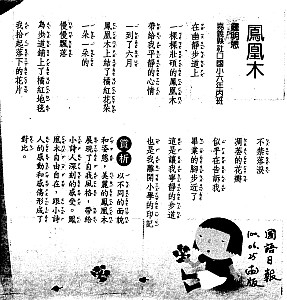 鳳凰木
嘉義縣社口國小六年丙班
在幽靜步道上
一棵棵壯碩的鳳凰木
帶給我平靜的心情
一到了六月
鳳凰木上結了橘紅花朵
一朵一朵的
慢慢飄落
為步道鋪上了橘紅地毯
我拾起落下的花片
不禁落淚
凋落的花瓣
似乎在告訴我
畢業的腳步近了
這是讓我寧靜的步道
也是我離開小學的印記
賞析
以不同的面貌
和姿態,美麗的鳳凰木
展現了自我風格,帶給
小詩人深刻的感受。鳳
凰木自由自在,跟小詩
人的感動和感傷形成了
對比。
國語日報